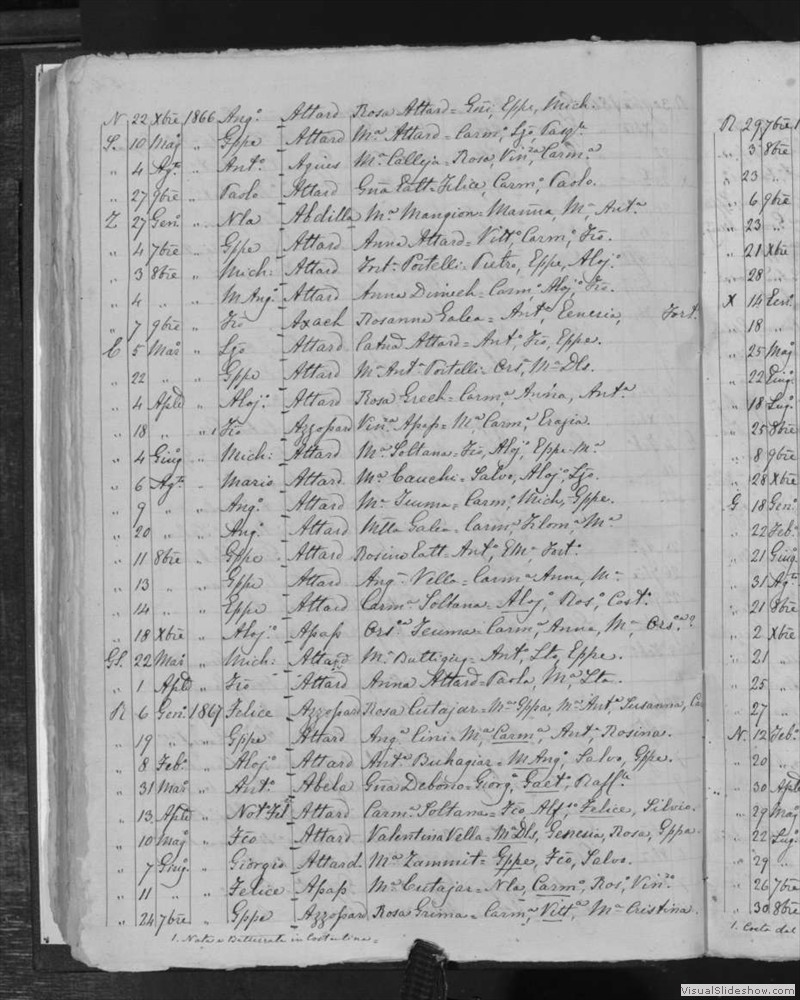 N 22 Xbre 1866 Ang.o Attard Rosa Attard = Gni, Eppe, Mich.
S. 10 Mag. " Gppe Attard M.a Attard = Carm.o Ljo,
" 4 Ag.to " Ant.o Agius M.a Calleja = Rosa Vin.a Carm.a
" 27 9bre " Paolo Attard Felice, Carm.o Paolo.
Z 27 Gen.o " Nla Abdilla M.a Mangion = Manna, M.a Ant.a
" 4 7bre " Gppe Attard Anna Attard = Vitt.o Carm.o Fco.
" 3 8bre " Mich: Attard Fort.a Portelli = Pietro, Eppe, Aloj.o
" 4 " " M Ang.o Attard Anna Dimech = Carm.o Aloj.o Fco.
" 7 9bre " Fco Axach Rosanna Galea = Ant.a Genesia, Fort.
C 5 Mar. " Ljo Attard Attard = Ant.o Fco, Eppe.
" 22 " " Gppe Attard M.a Ant.a Portelli = Ors.a M.a Dls.
" 4 Aple " Aloj.o Attard Rosa Grech = Carm.a Anna, Ant.a
" 18 " " 1 Fco Azzopard Vin.a Apap = M.a Carm.a
" 4 Giug. " Mich: Attard M.a Soltana = Fco, Aloj.o Eppe M.a
" 6 Ag.to " Mario Attard M.a Cauchi = Salvo, Aloj.o Ljo.
" 9 " " Ang.o Attard M.a Teuma = Carm.o Mich, Gppe.
" 20 " " Ang.o Attard Galea = Carm.a Filom.a M.a
" 11 8bre " Gppe Attard Ant.o Fort.o
" 13 " " Gppe Attard Ang.a Vella = Carm.a Anna, M.a
" 14 " " Eppe Attard Carm.a Soltana = Aloj.o Ros.o Cost.o
" 18 Xbre " Aloj.o Apap Ors.a Teuma = Carm.a Anna, M.a Ors.a
Gl. 22 Mar. " Mich: Attard M.a Buttigieg = Ant.o Eppe.
" 1 Aple " Fco Attard Anna Attard = Paola, M.a
R 6 Gen.o 1867 Felice Azzopard Rosa Cutajar = M.a Gppa, M.a Ant.a Susanna, Ca
" 19 " " Gppe Attard Ang.a Cini = M.a Carm.a Ant.a Rosina.
" 8 Feb.o " Aloj.o Attard Ant.a Buhagiar = M Ang.o Salvo, Gppe.
" 31 Mar. " Ant.o Abela Gna Debono = Giorg.o Gaet.o Raff.le
" 13 Aple " Attard Carm.a Soltana = Fco, Alf.so Felice, Silvio.
" 10 Mag. " Fco Attard Valentina Vella = M.a Dls, Genesia, Rosa, Gppa
" 7 Giug. " Giorgio Attard M.a Zammit = Gppe, Fco, Salvo.
" 11 " " Felice Apap M.a Cutajar = Nla, Carm.o Ros.o Vin.o
" 24 7bre " Gppe Azzopard Rosa Grima = Carm.a Vitt.a M.a Cristina.
1. Nato e Battezzato in Costantina.
R 29 7bre 1
" 3 8bre
23 "
" 6 9bre
" 23 "
" 21 Xbre
" 28 "
X 14 Gen.o
" 18 "
" 25 Mag
" 22 Giug
" 18 Lug.o
" 25 8bre
" 8 9bre
" 28 Xbre
G 18 Gen.o
" 22 Feb.o
" 21 Giug.
" 31 Ag.to
" 21 8bre
" 2 Xbre
" 21 "
" 25 "
" 27 "
N. 12 Feb.o
" 20 "
" 30 Aple
" 29 Mag
" 22 Lug.o
" 29 "
" 26 7bre
" 30 8bre
1. Costa dal
VisualSlideshow.com